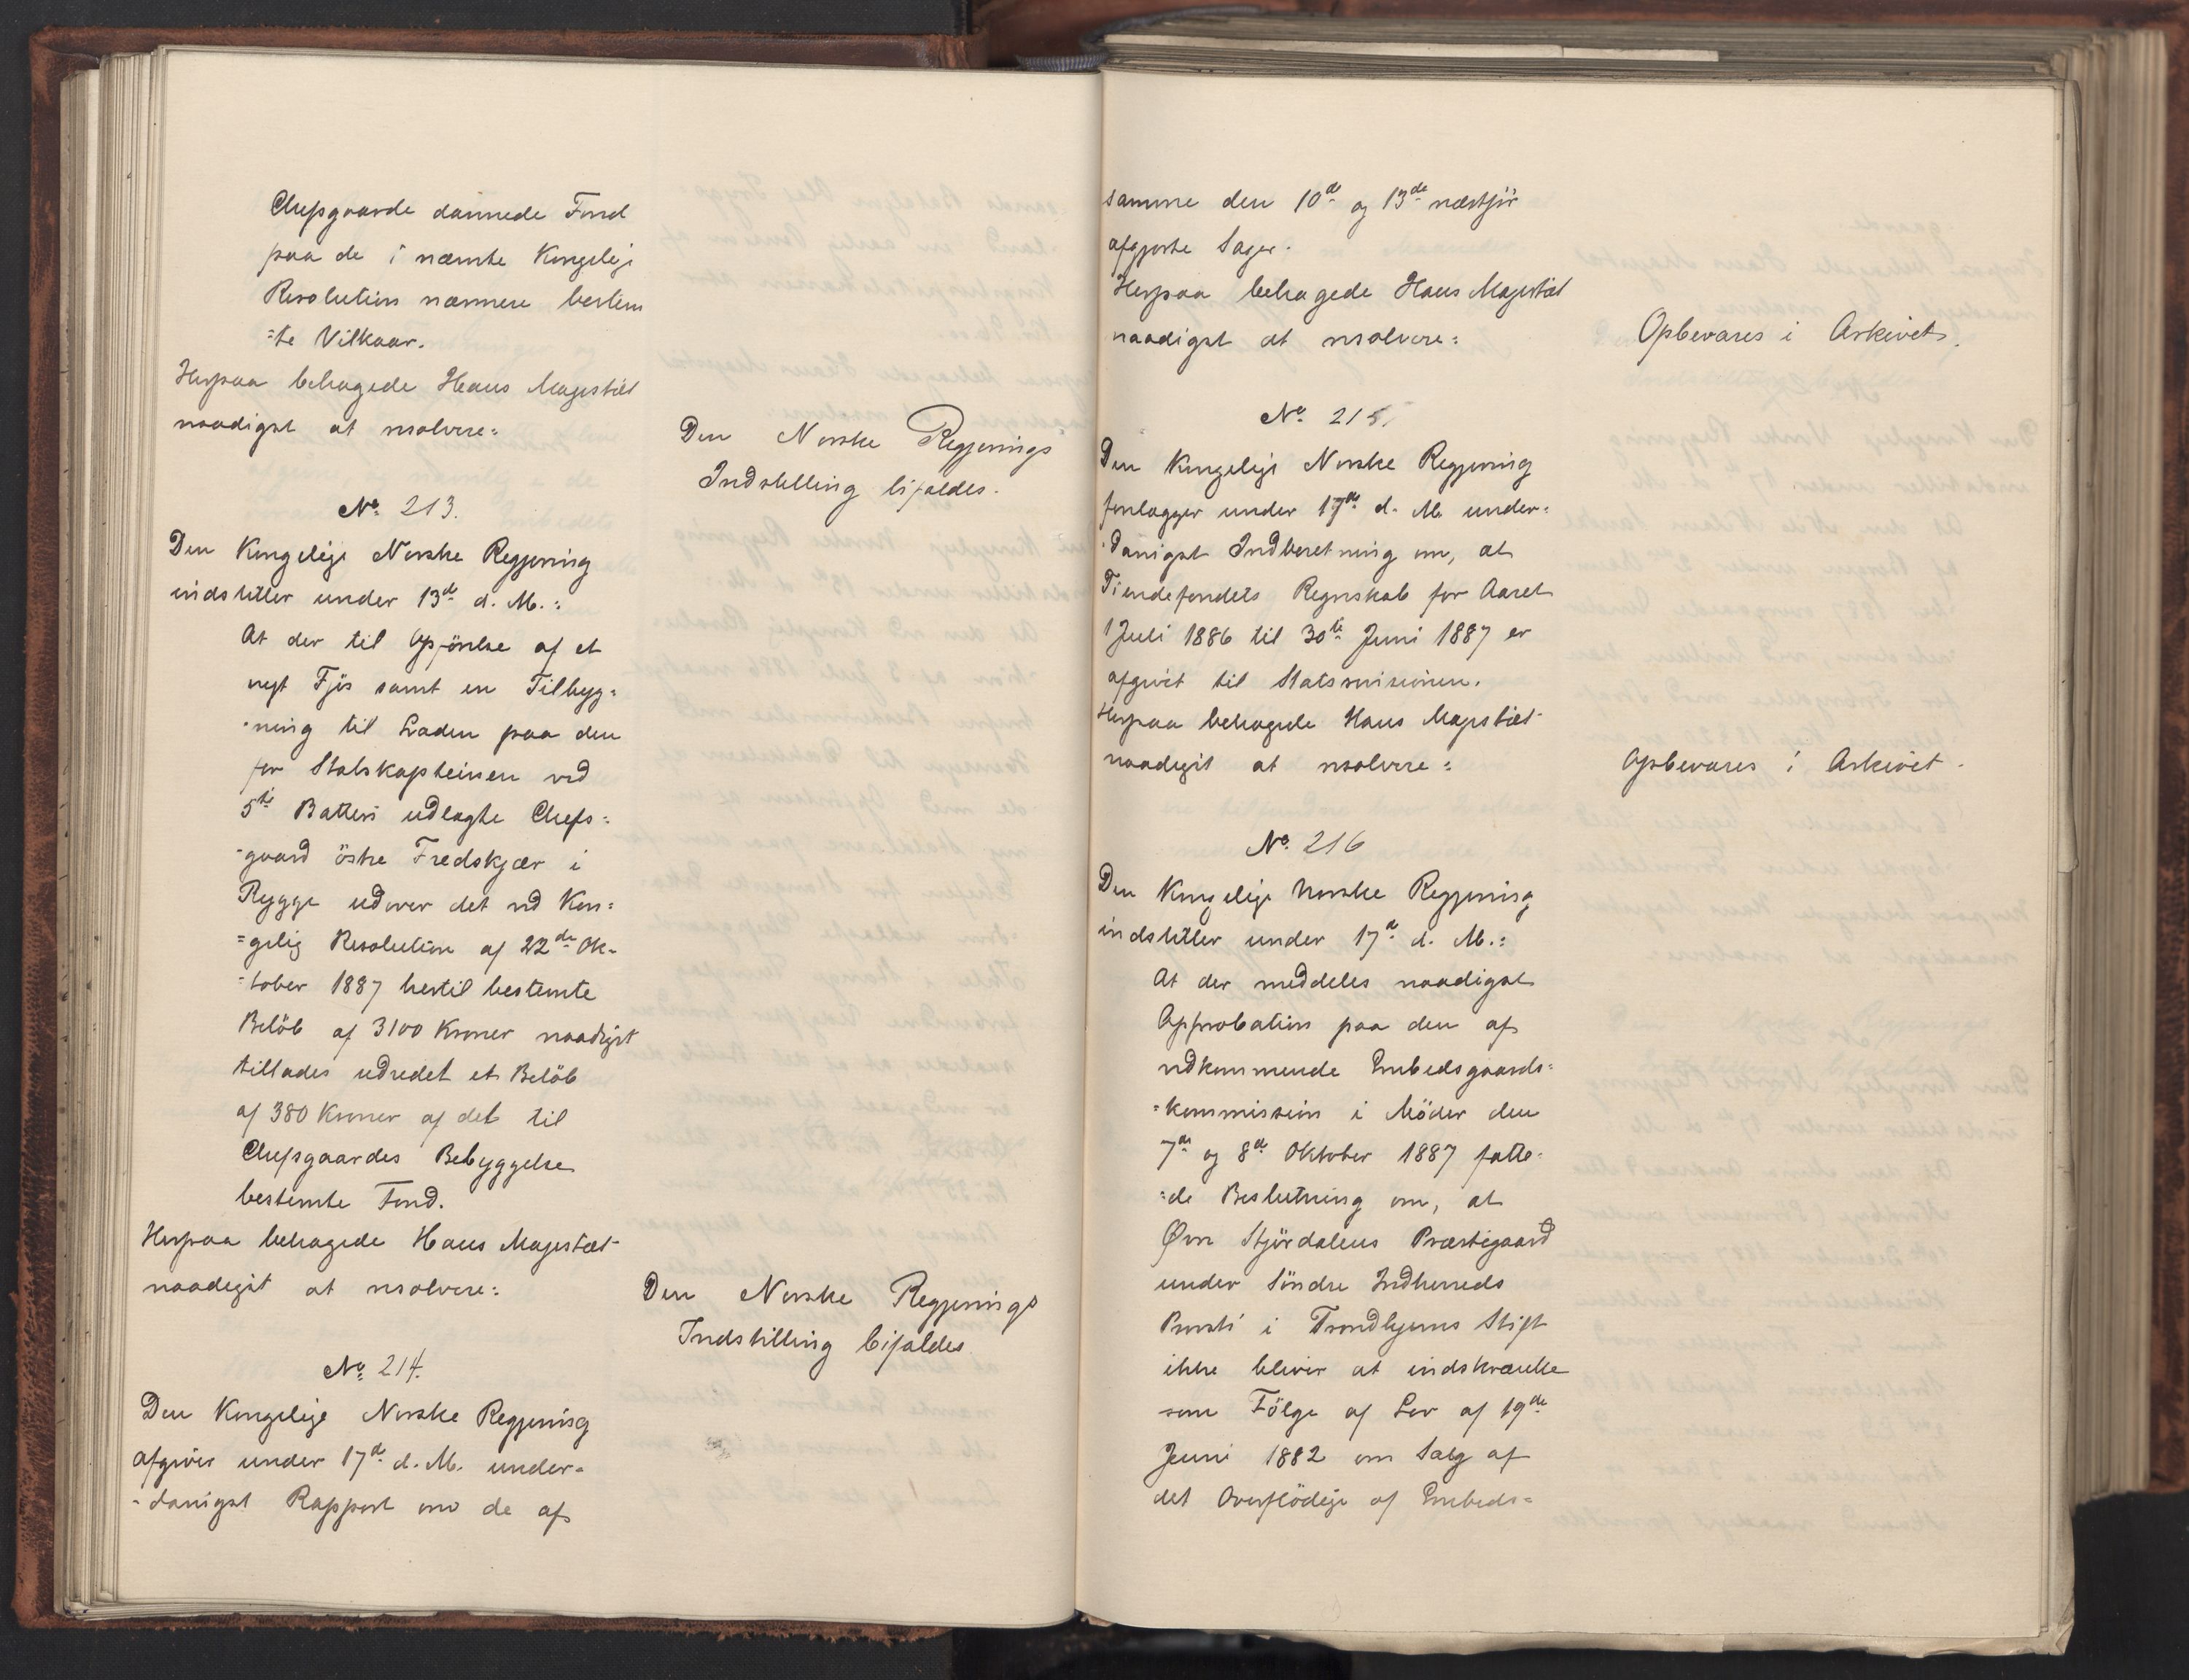 Chefsgaarde dannede Fond
paa de i nævnte Kongelige
Resolution nærmere bestem
=te Vilkaar.
Herpaa behagede Hans Majestæt
naadigst at resolvere:
Den Norske Regjerings
Indstilling bifaldes.
No. 213.
Den Kongelige Norske Regjering
indstiller under 13de d. M.:
At der til Opförelse af et
nyt Fjøs samt en Tilbyg=
=ning til Laden paa den
for Stabskapteinen ved
5te Batteri udlagte Chefs=
=gaard östre Fredskjær i
Rygge udover det ved Kon=
=gelig Resolution af 22de Ok=
=tober 1887 hertil bestemte
Belöb af 3100 Kroner naadigst
tillades udredet et Belöb
af 380 Kroner af det til
Chefsgaardes Bebyggelse
bestemte Fond.
Herpaa behagede Hans Majestæt
naadigst at resolvere:
Den Norske Regjerings
Indstilling bifaldes
No. 214.
Den Kongelige Norske Regjering
afgiver under 17de d. M. under=
=danigst Rapport om de af
samme den 10de og 13de næstfør
afgjorte Sager.
Herpaa behagede Hans Majestæt
naadigst at resolvere:
Opbevares i Arkivet.
No. 215
Den Kongelige Norske Regjering
forelægger under 17de d. M. under=
=danigst Indberetning om, at
Tiendefondets Regnskab for Aaret
1 Juli 1886 til 30te Juni 1887 er
afgivet til Statsrevisionen.
Herpaa behagede Hans Majestæt
naadigst at resolvere:
Opbevares i Arkivet.
No. 216
Den Kongelige Norske Regjering
indstiller under 17de d. M.:
At der meddeles naadigst
Approbation paa den af
vedkommende Embedsgaards=
=kommission i Möder den
7de og 8de Oktober 1887 fatte=
=de Beslutning om, at
Øvre Stjördalens Præstegaard
under Söndre Indherreds
Provsti i Trondhjems Stift
ikke bliver at indskrænke
som Fölge af Lov af 19de
Juni 1882 om Salg af
det Overflödige af Embeds=